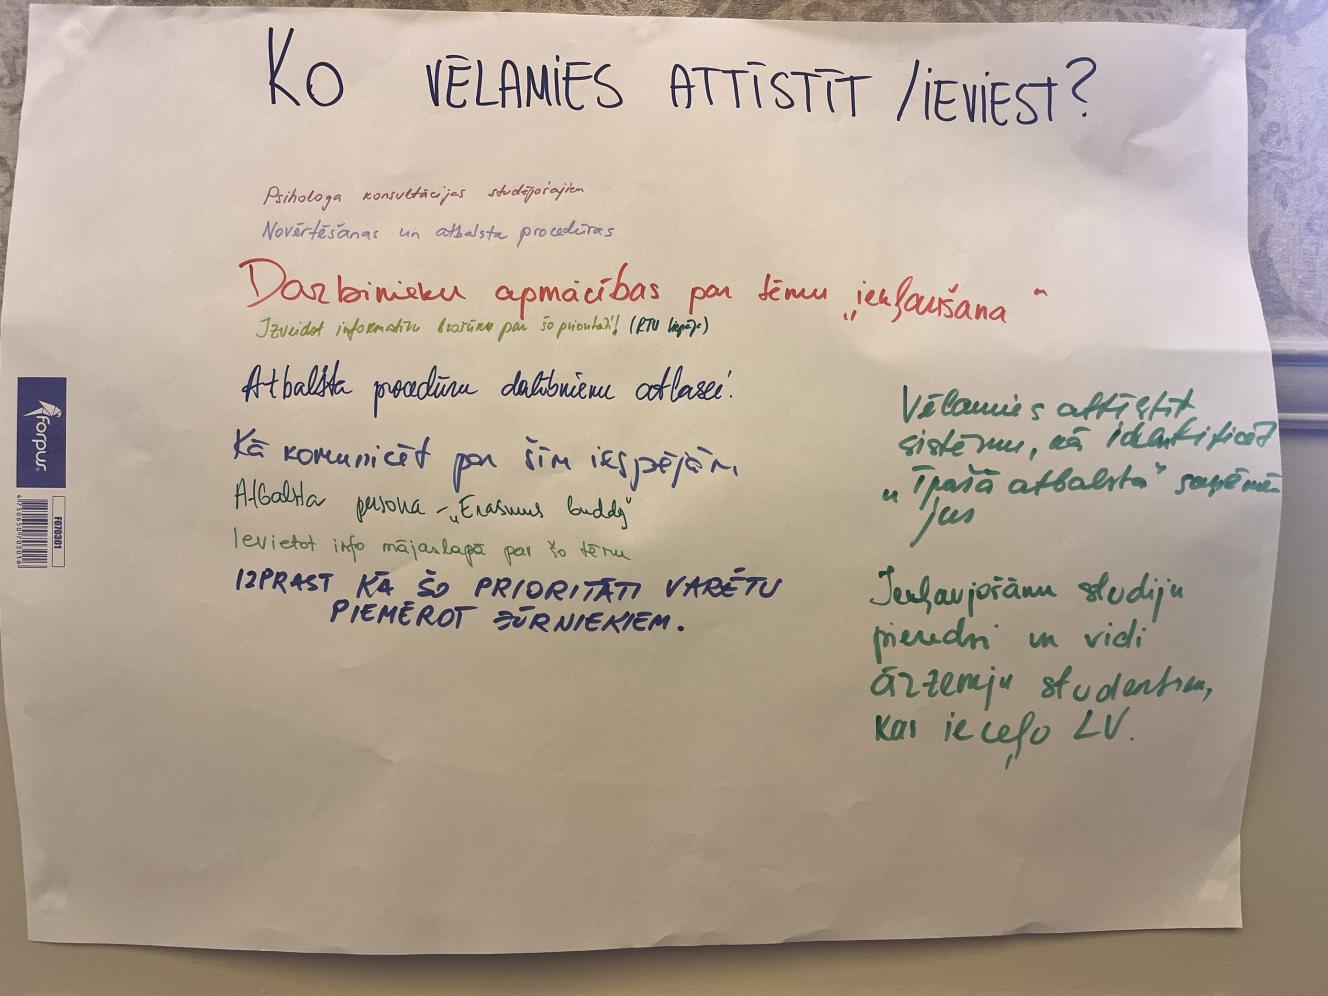 KO VĒLAMIES ATTĪSTĪT /IEVIEST?
Psihologa konsultācijas studējošajiem
Novērtēšanas un atbalsta procedūras
Darbinieku apmācības par tēmu „iekļaušana"
Izveidot informatīvu brošūru par šo prioritāti! (RTU Liepāja)
Atbalsta procedūru dalībnieku atlasei.
Kā komunicēt par šīm iespējām,
Atbalsta persona - „Erasmus buddy"
Ievietot info mājaslapā par šo tēmu
IZPRAST KĀ ŠO PRIORITĀTI VARĒTU
PIEMĒROT JŪRNIEKIEM.
Vēlamies attīstīt
sistēmu, kā identificēt
„īpašā atbalsta" saņēmē-
jus
Iekļaujošāku studiju
pieredzi un vidi
ārzemju studentiem,
kas ieceļo LV.
forpus
F070301
4750650703016